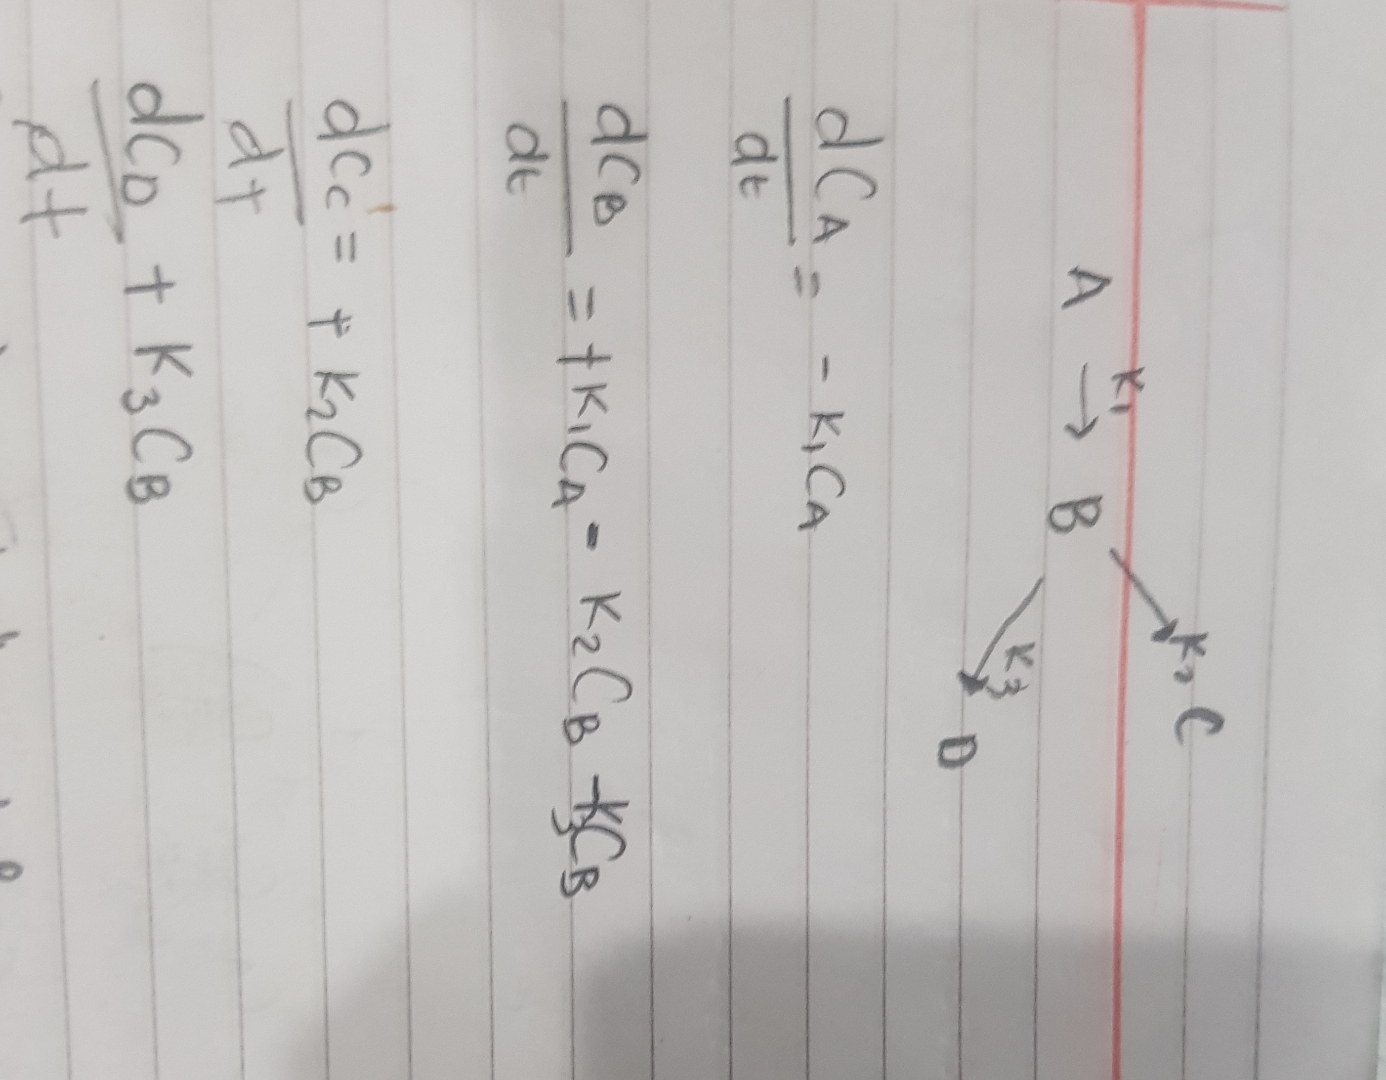 K₂ C
A K₁ → B
K₃ D
dC_A/dt = - K₁C_A
dC_B/dt = + K₁C_A - K₂C_B - K₃C_B
dC_C/dt = + K₂C_B
dC_D/dt + K₃C_B